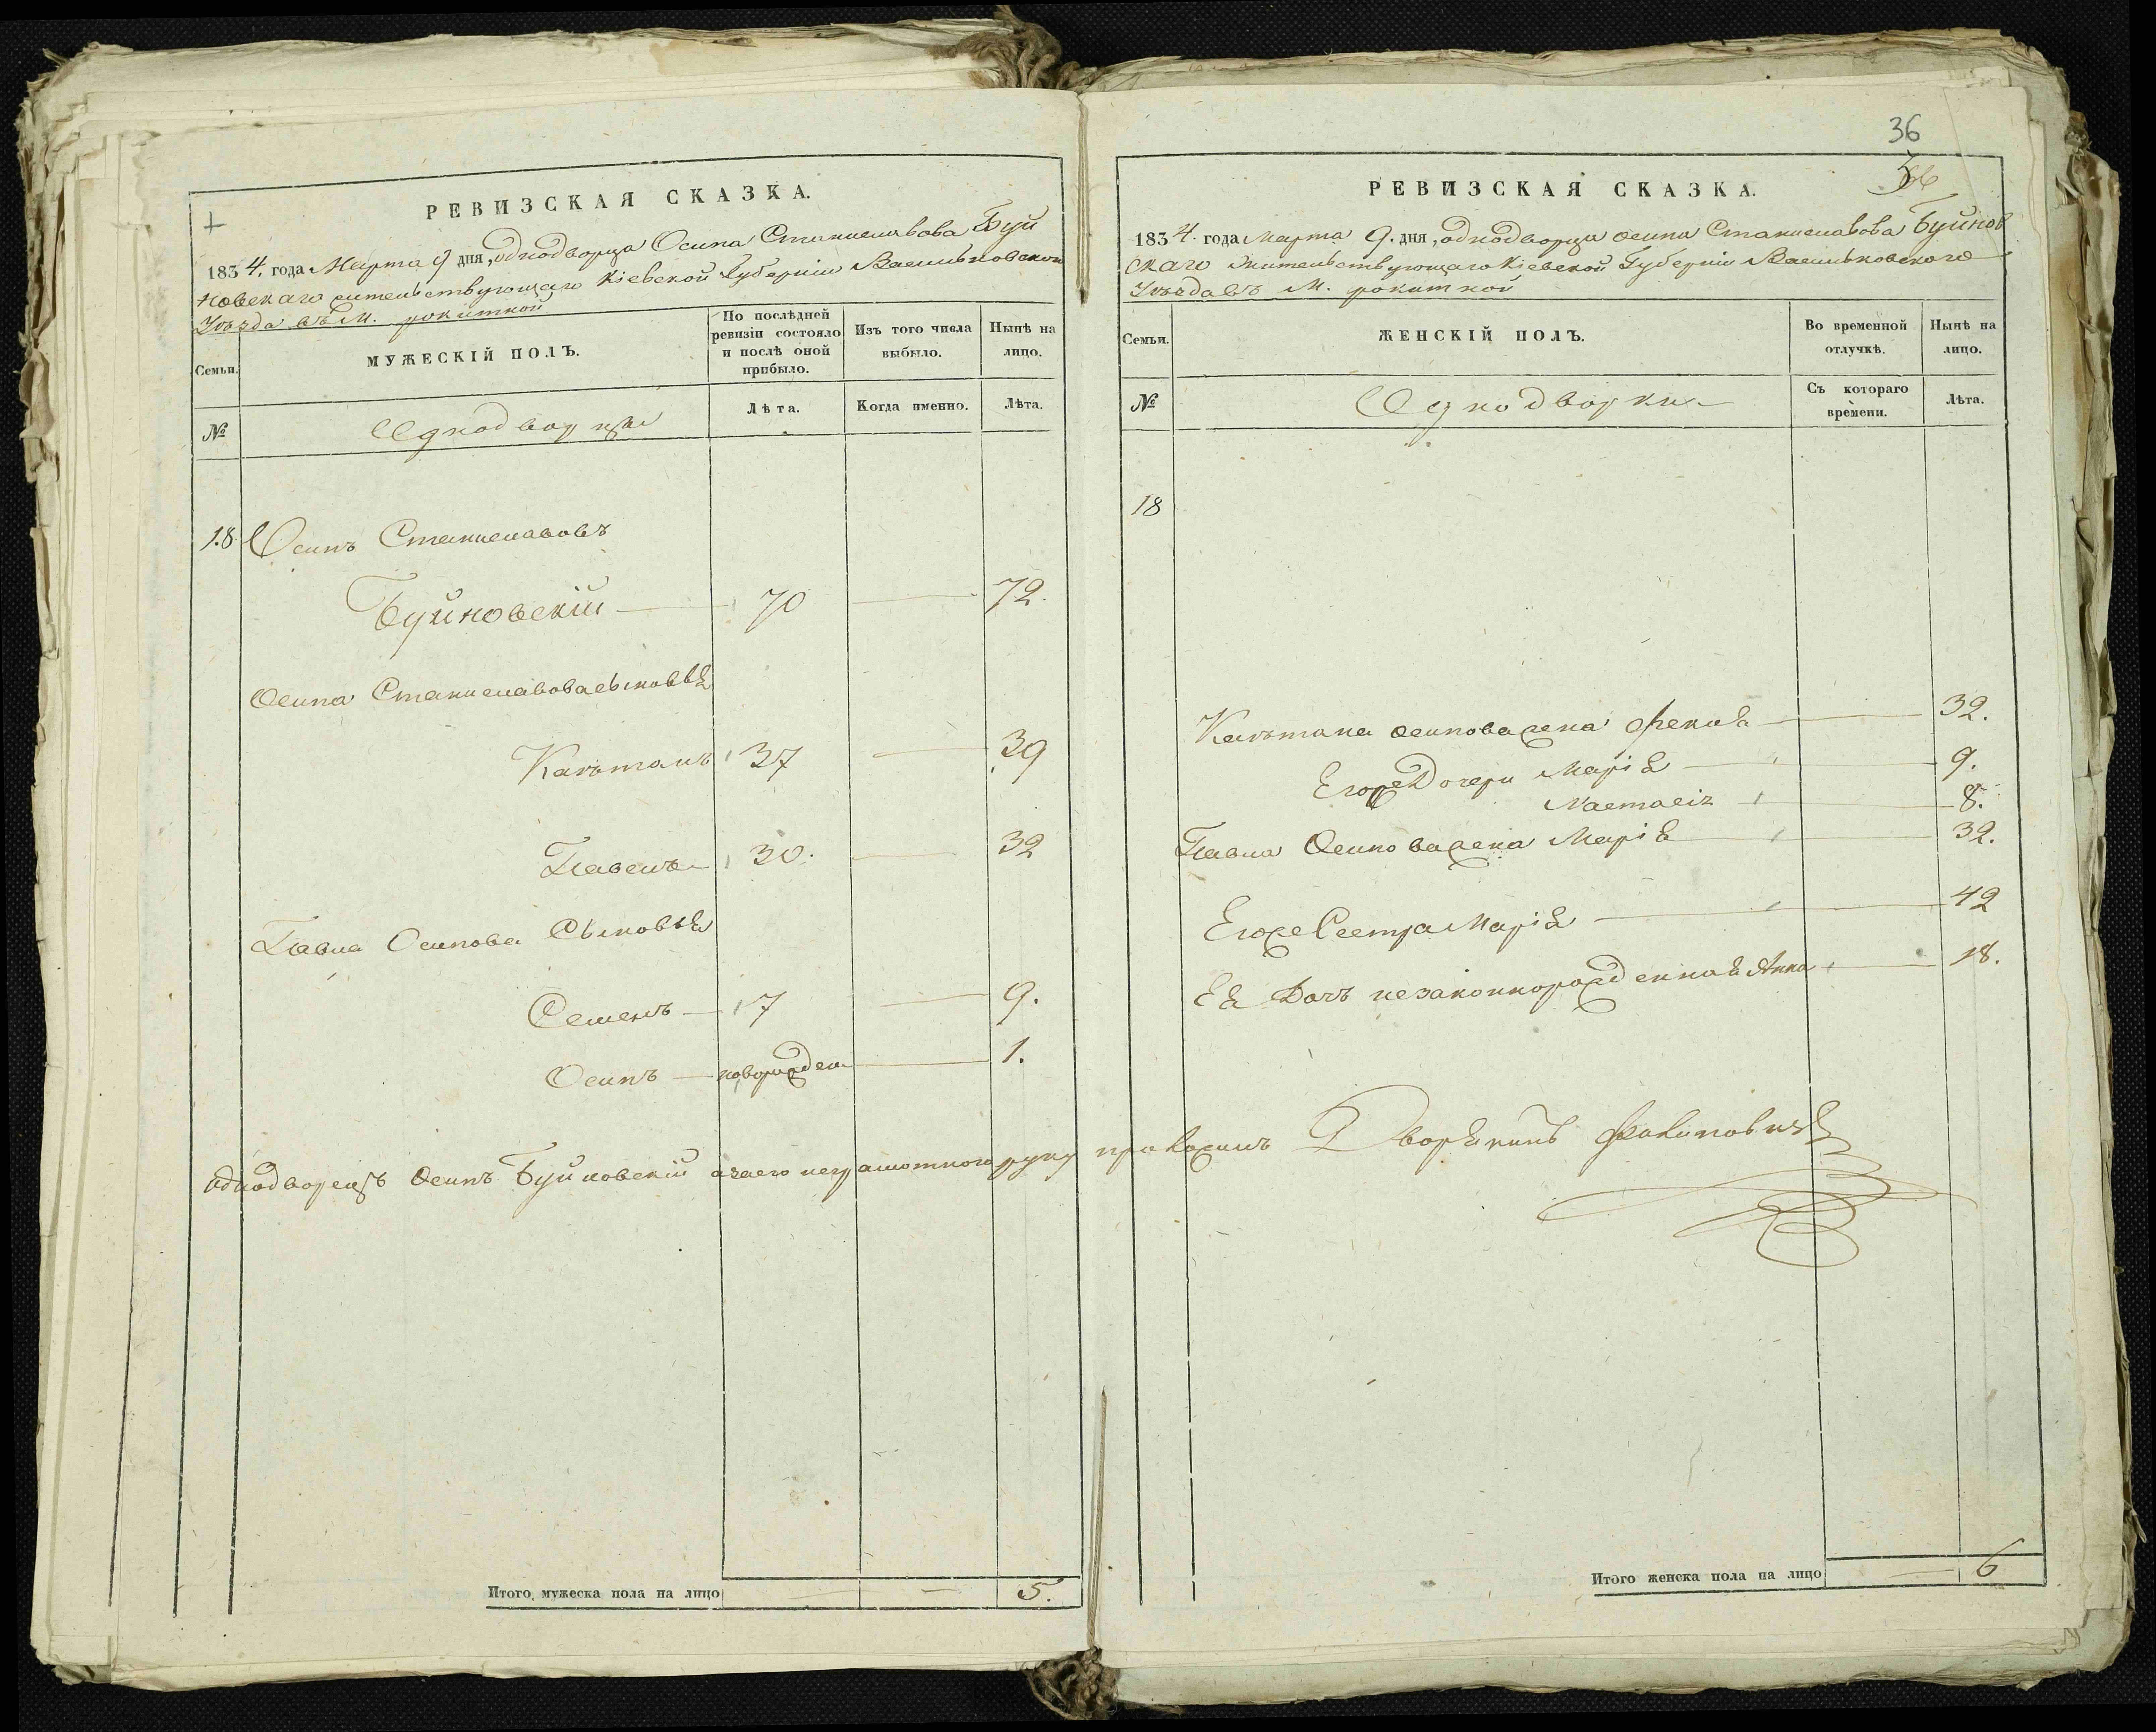 РЕВИЗСКАЯ СКАЗКА.
1834. года Марта 9 дня, однодворца Осипа Станиславова Буй
новскаго жительствующаго Кіевской Губерніи Васильковского
Уѣзда въ М. рокитной
Семьи.
МУЖЕСКІЙ ПОЛЪ.
По послѣдней
ревизіи состояло
и послѣ оной
прибыло.
Изъ того числа
выбыло.
Нынѣ на
лицо.
№
Однодворцы
Лѣта.
Когда именно.
Лѣта.
18 Осипъ Станиславовъ
Буйновскій 70 72.
Осипа Станиславова сыновья
Каэтанъ 37 39
Павелъ 30. 32
Павла Осипова Сыновья
Семенъ 7 9.
Осипъ новорожден 1.
однодворецъ Осипъ Буйновскій а за его неграмотного руку приложилъ Дворянинъ
Итого мужеска пола на лицо 5.
36
РЕВИЗСКАЯ СКАЗКА.
1834. года Марта 9. дня, однодворца Осипа Станиславова Буйнов
скаго жительствующаго Кіевской Губерніи Васильковского
Уѣзда въ М. рокитной
Семьи.
ЖЕНСКІЙ ПОЛЪ.
Во временной
отлучкѣ.
Нынѣ на
лицо.
№
Однодворки
Съ котораго
времени.
Лѣта.
18
Каэтана Осипова жена Фекла 32.
Егоже Дочери Марія 9.
Настасія 8.
Павла Осипова жена Марія 32.
Егоже Сестра Марія 42
Ея Дочь незаконнорожденная Анна 18.
Итого женска пола на лицо 6